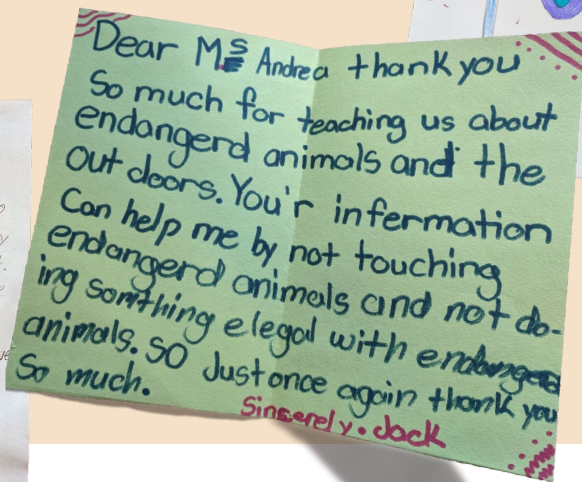 Dear Ms Andrea thank you
So much for teaching us about
endangerd animals and the
out doors. You'r infermation
Can help me by not touching
endangerd animals and not do-
ing somthing elegal with endangerd
animals. So Just once again thank you
So much.
Sinserely. Jack